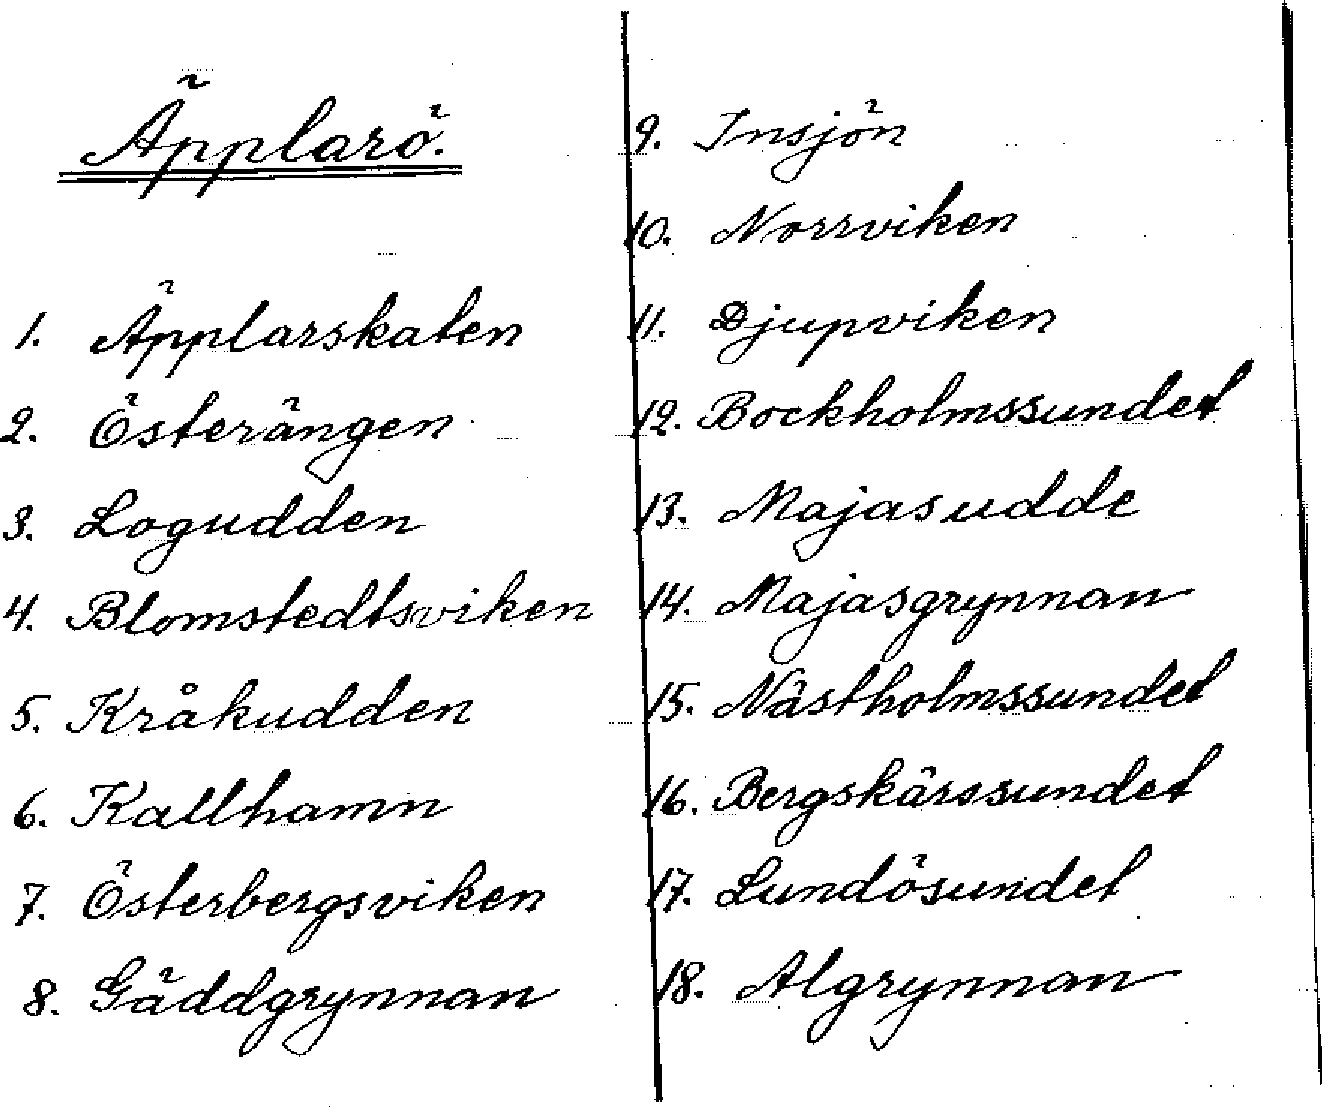 Äpplarö.
1. Äpplarskaten
2. Österängen
3. Logudden
4. Blomstedtsviken
5. Kråkudden
6. Kallhamn
7. Österbergsviken
8. Gäddgrynnan
9. Insjön
10. Norrviken
11. Djupviken
12. Bockholmssundet
13. Majasudde
14. Majasgrynnan
15. Nästholmssundet
16. Bergskärssundet
17. Lundösundet
18. Algrynnan